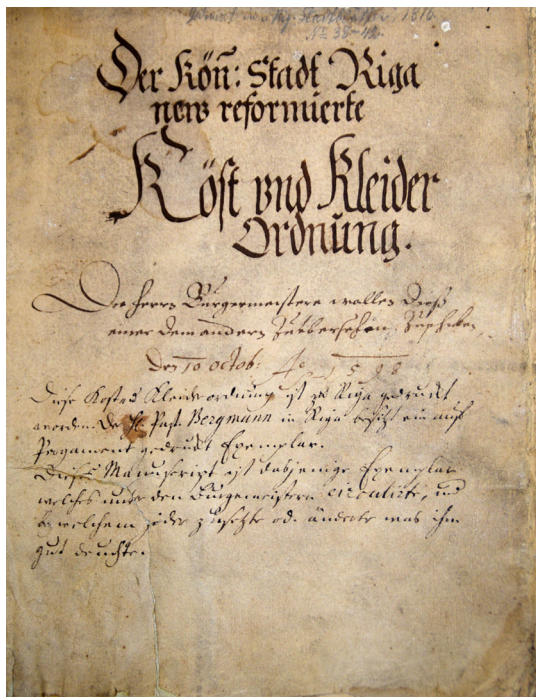 1816.
Der Kön̄: Stadt Riga
new reformierte
Köst vnd Kleider
Ordnung.
Die Herrn Bürgermeistere wollen dieß
einer dem andern Zuschicken,
Den 10 octob: Aº 1598
Diese Kost u Kleiderordnung ist zu Riga gedruckt
worden. De H. Past. Bergmann in Riga besitzt ein auf
Pergament gedrukt Exemplar.
Dieses Manuscript ist dasjenige Exemplar
welches unter den Burgemeistern circulirte, und
in welchem jeder zusetzte od. änderte was ihm
gut deuchte.